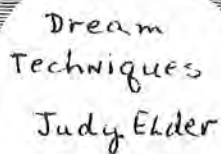 Dream
Techniques
Judy Elder